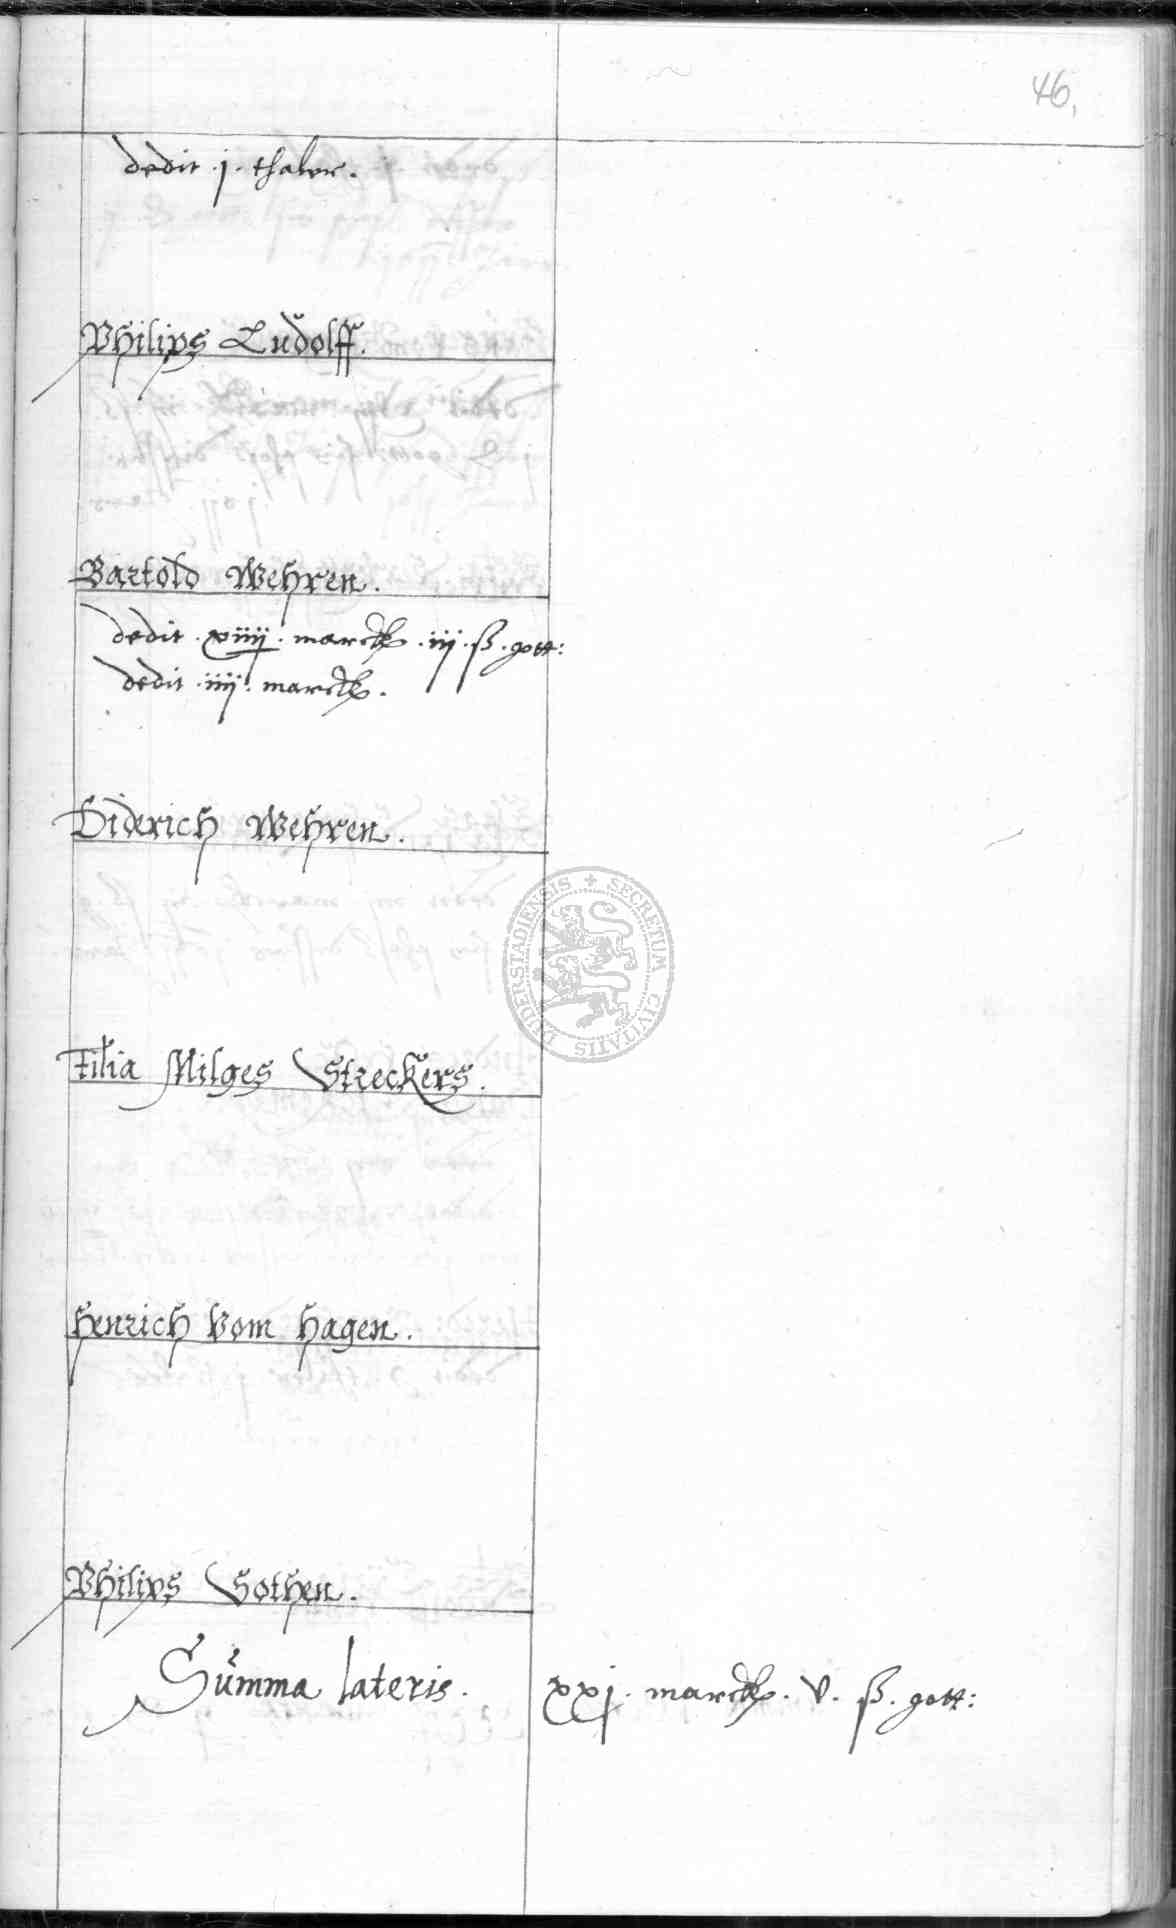 46,
dedit · j · thaler.
Philips Ludolff.
Bartold Wehren.
dedit · xiiij · marck · iij · ß · gott:
dedit · iiij · marck.
Diderich Wehren.
Filia Milges Streckers.
Henrich Vom Hagen.
Philips Sothen.
Summa lateris. xxj · marck · v · ß · gott:
SECRETUM CIVITATIS DUDERSTADIENSIS